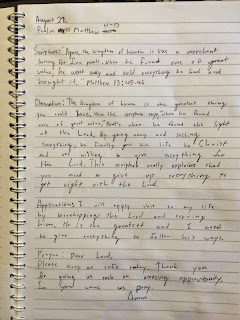 August 29.
Psalm Matthew 11-13
Scripture: Again, the kingdom of heaven is like a merchant
looking for fine pearls. When he found one of great
value, he went away and sold everything he had and
bought it." Matthew 13:45-46
Observation: The kingdom of heaven is the greatest thing
you could have. When the scripture says "when he found
one of great value," that's when he found the light
of the Lord. By going away and selling
everything, he finally gave his life to Christ
and was willing to give everything for
the Lord. This scripture really explains that
you need to give up everything to
get right with the Lord.
Application: I will apply this to my life
by worshipping the Lord and serving
him. He is the greatest and I need
to give everything to follow his ways.
Prayer: Dear Lord,
Please keep us safe today. Thank you
for giving us such an amazing opportunity.
In your name we pray,
Amen